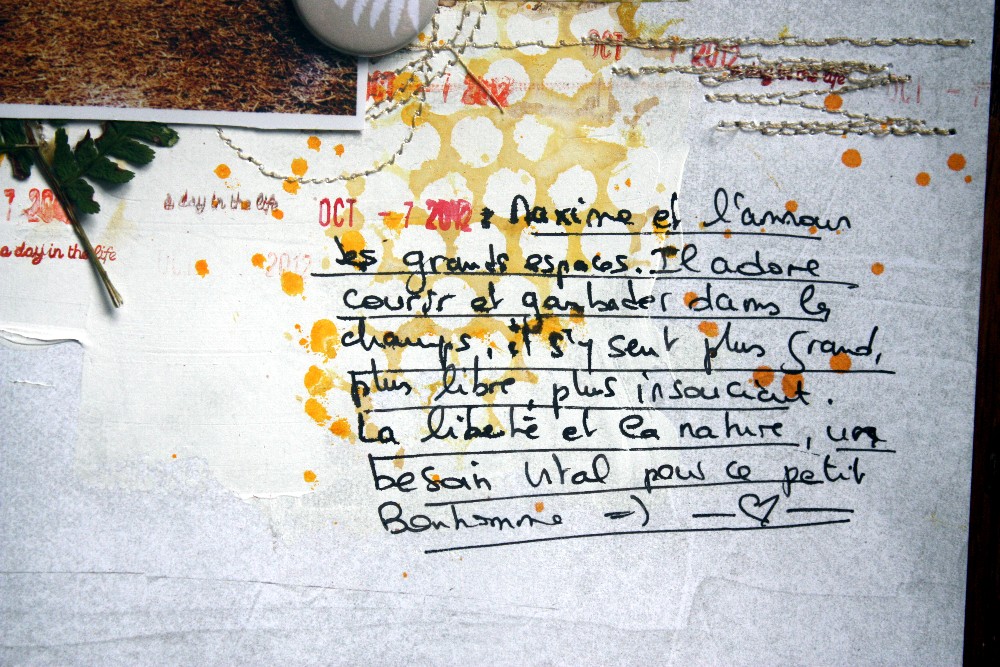 OCT -7 2012
a day in the life
OCT -7 2012
OCT -7
7 201
a day in the life
a day in the life
2012
OCT -7 2012 : Maxime et l'amour
les grands espaces. Il adore
courir et gambader dans les
champs, il s'y sent plus grand,
plus libre, plus insouciant.
La liberté et la nature, un
besoin vital pour ce petit
Bonhomme =) — ♡ —